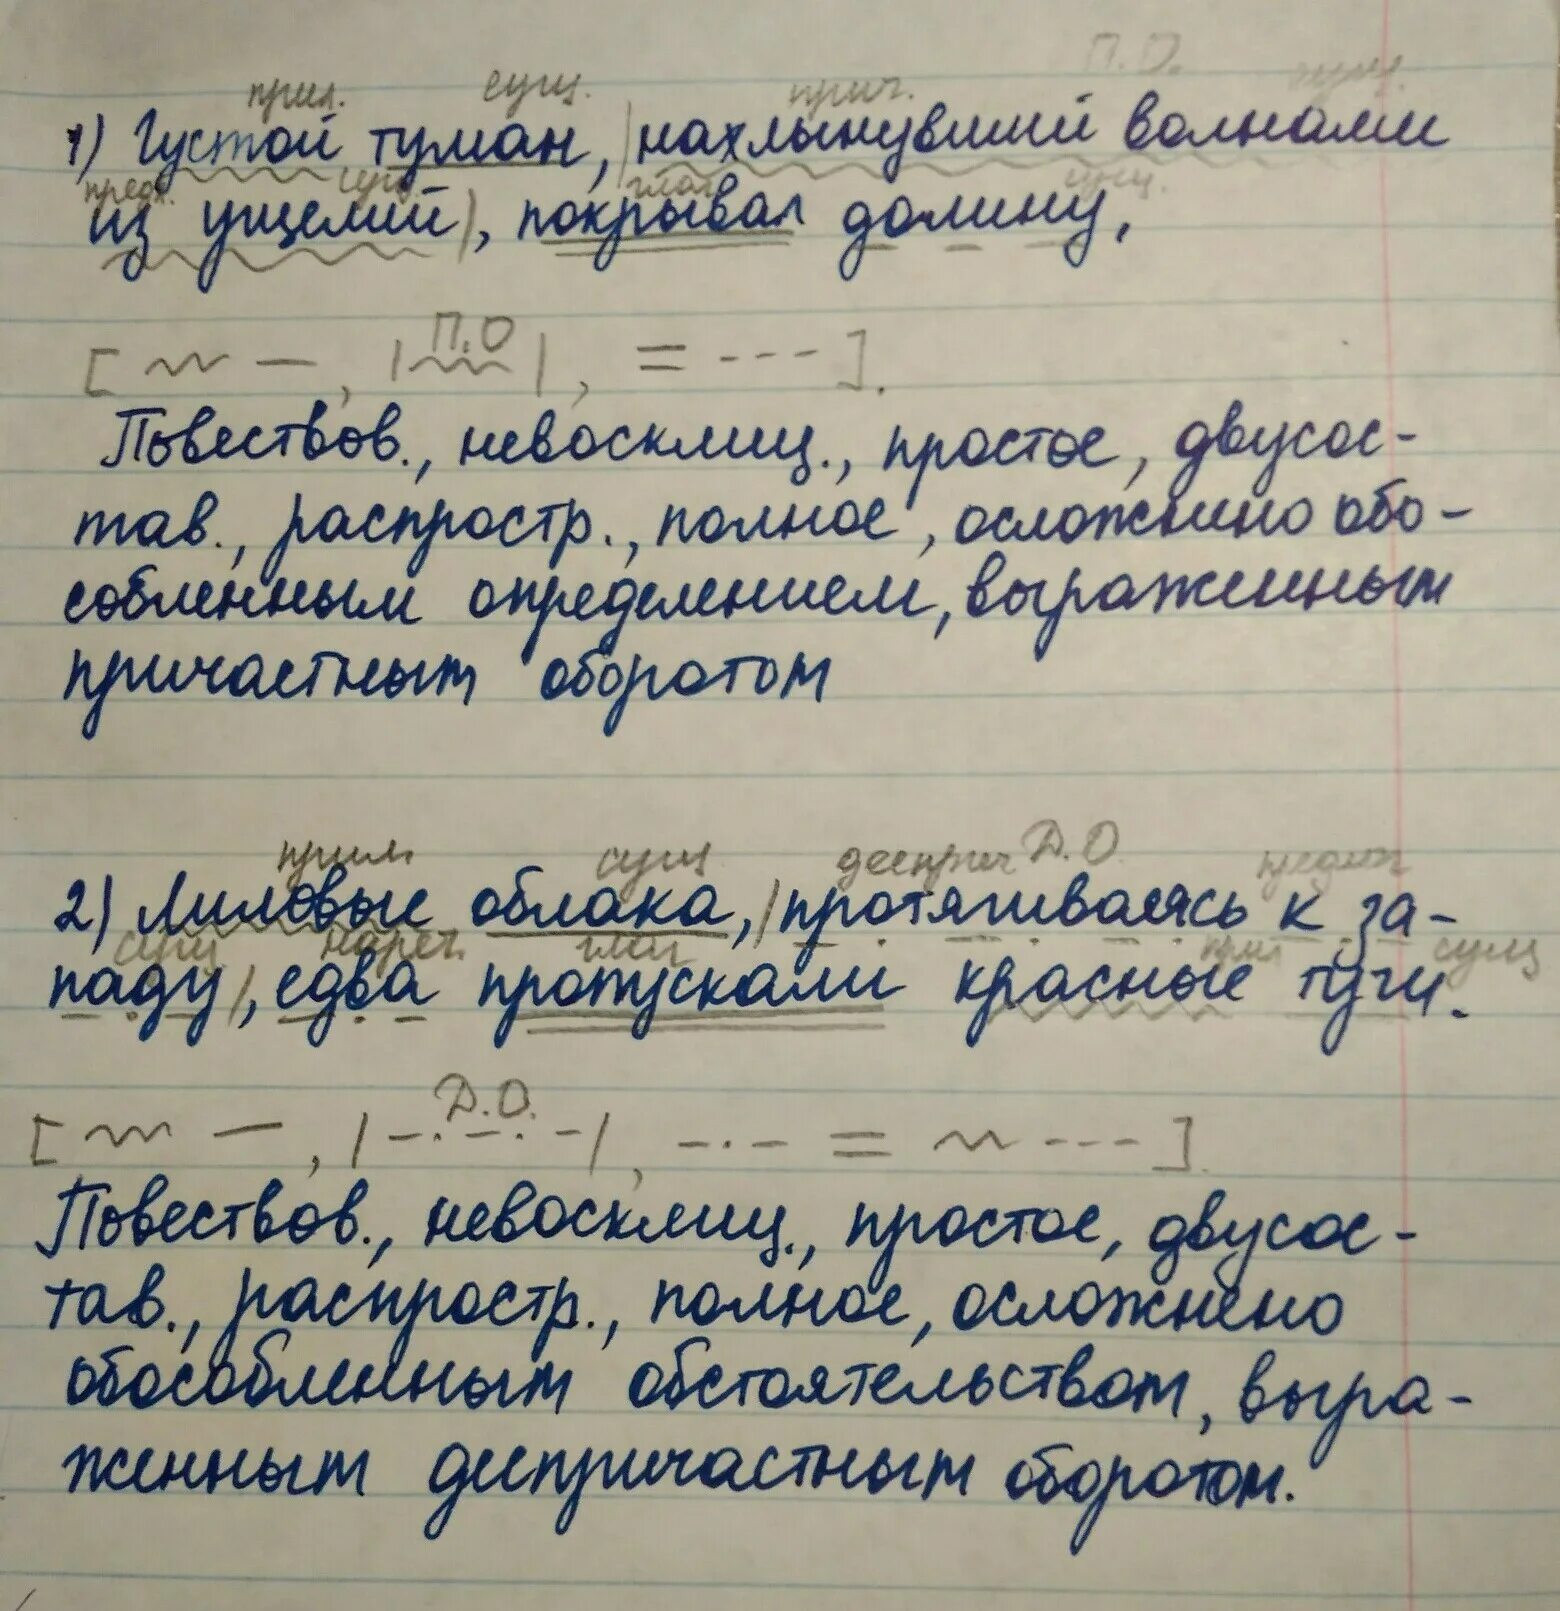 прил. сущ. прич. П.О. сущ.
1) Густой туман, |нахлынувший волнами
предл. сущ. глаг. сущ.
из ущелий|, покрывал долину,
П.О
[ ~~ — , |~~~| , = --- ].
Повествов., невосклиц., простое, двусос-
тав., распростр., полное, осложнено обо-
собленным определением, выраженным
причастным оборотом
прил. сущ дееприч Д.О. предлог
2) Лиловые облака, |протягиваясь к за-
сущ нареч. глаг прил сущ
паду|, едва пропускали красные тучи.
Д.О.
[ ~~ — , |-.-.-| , -.- = ~ --- ].
Повествов., невосклиц., простое, двусос-
тав., распростр., полное, осложнено
обособленным обстоятельством, выра-
женным деепричастным оборотом.